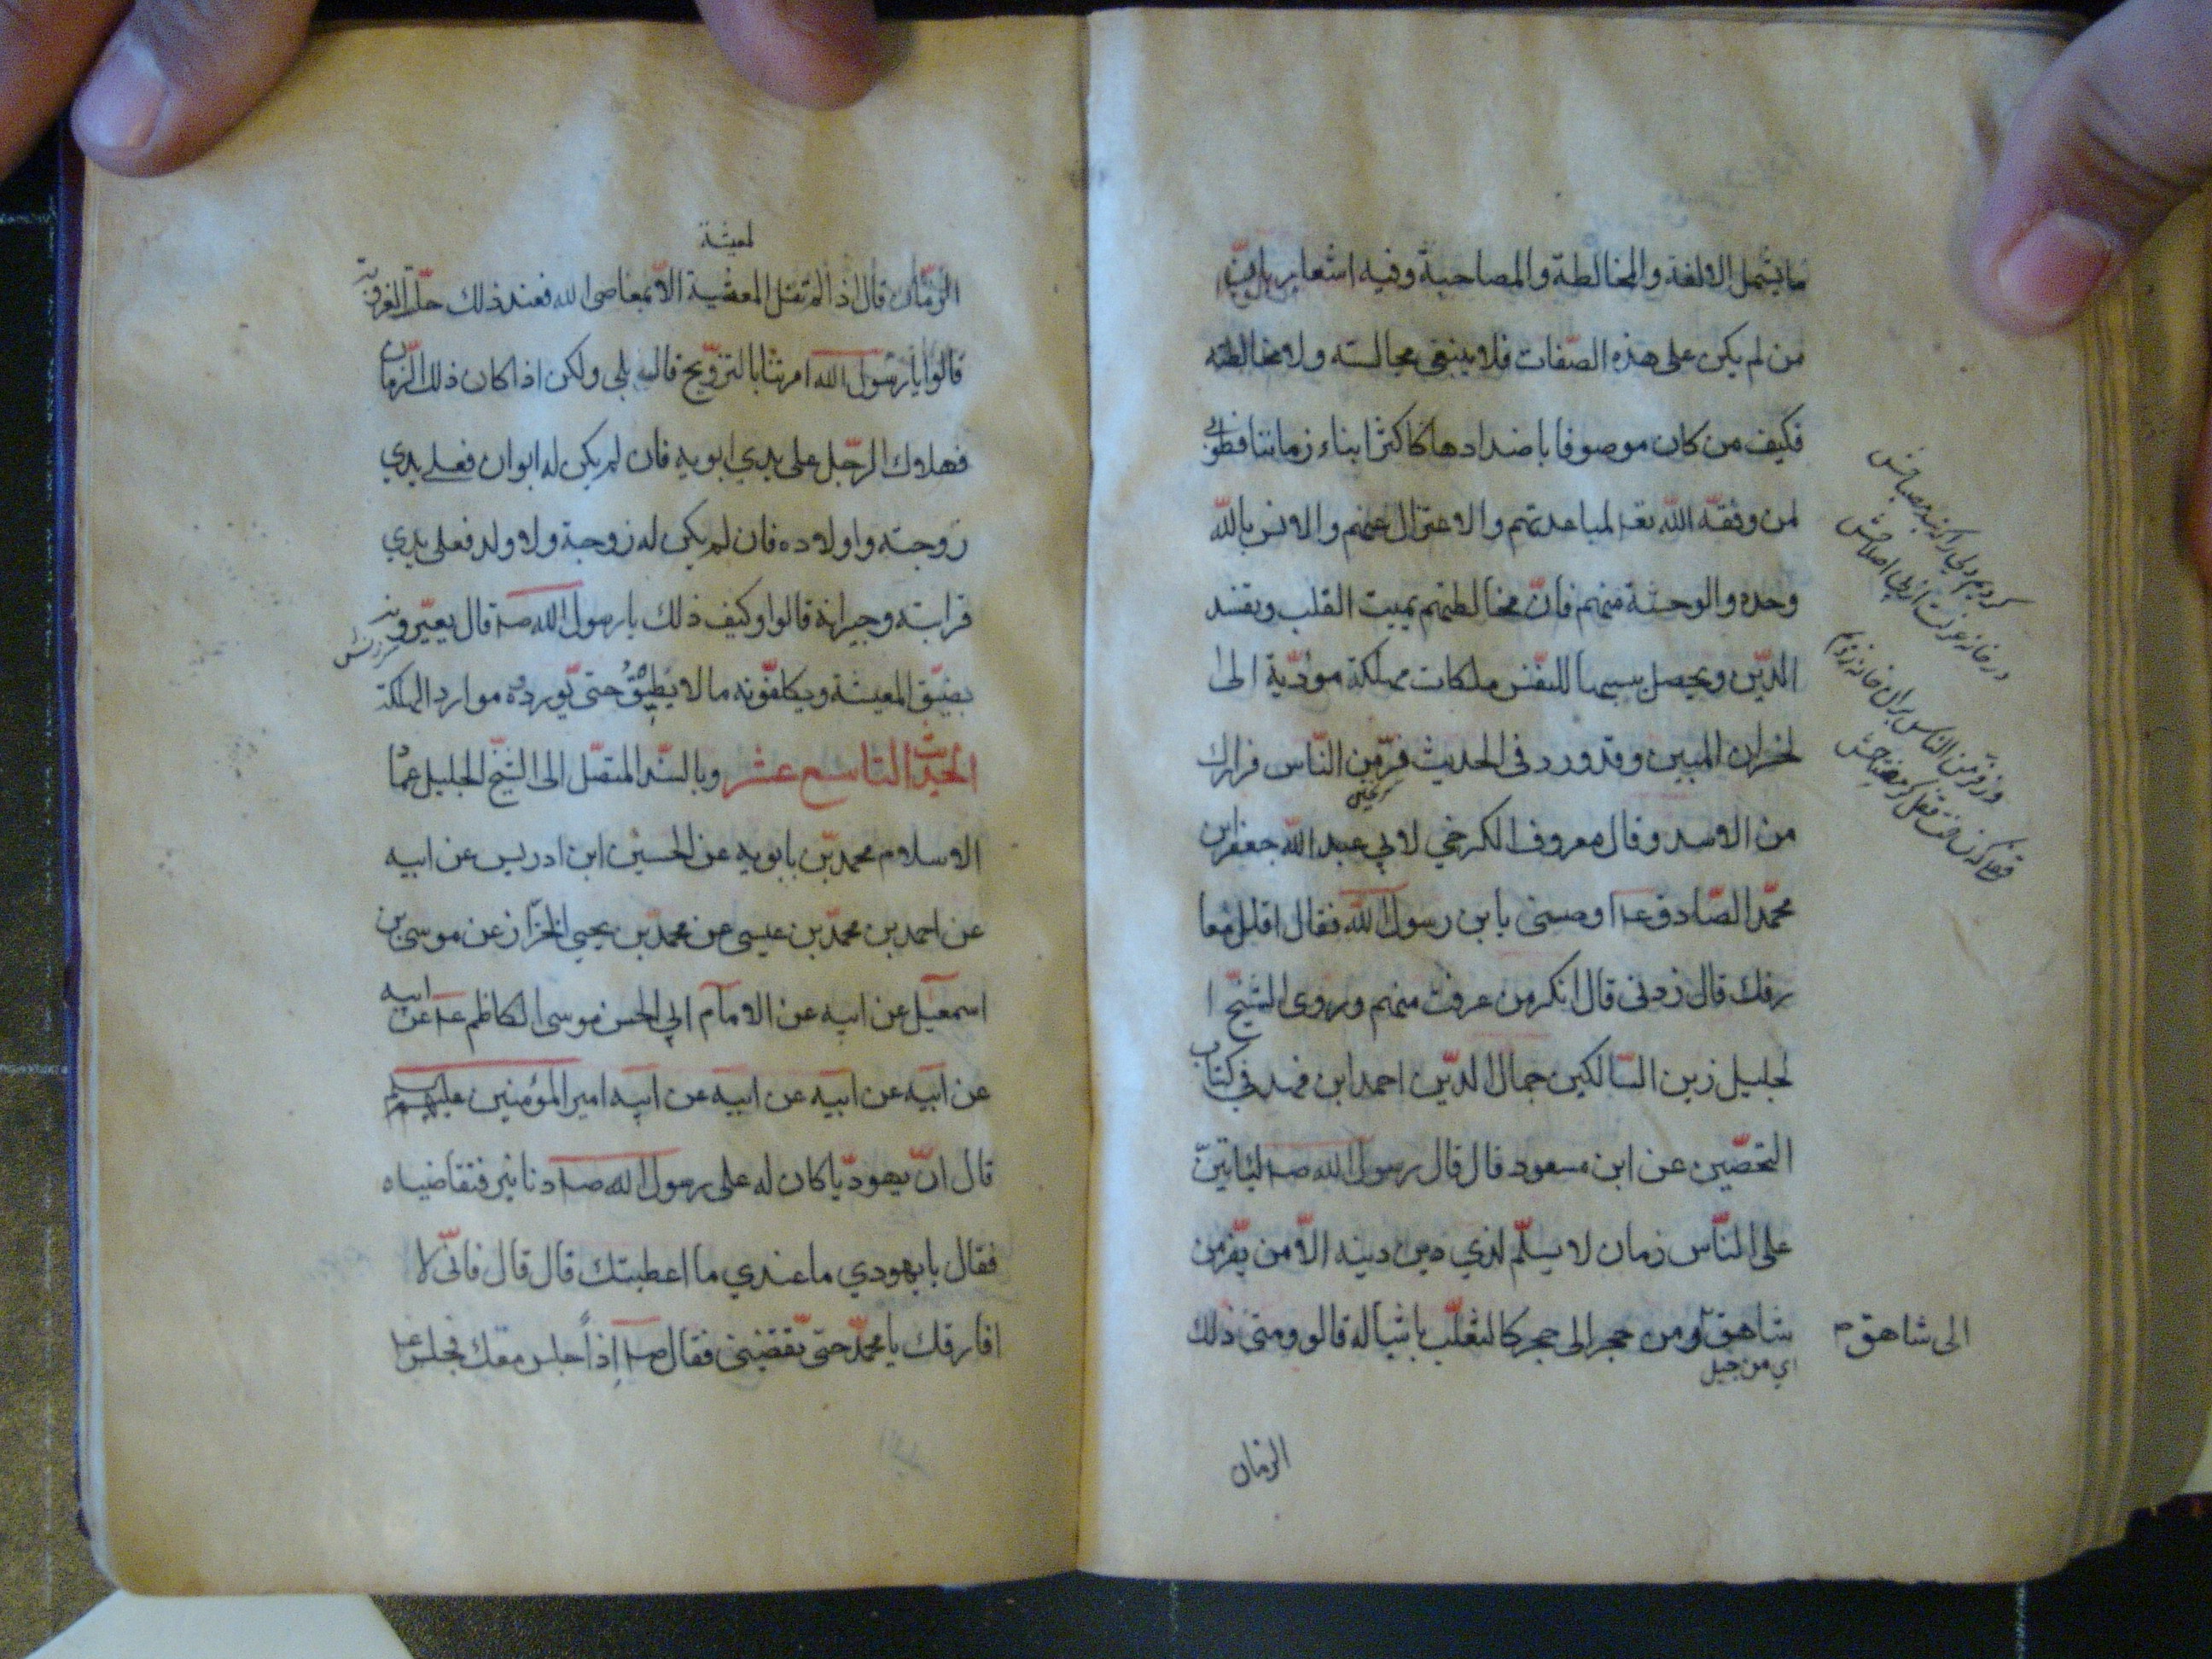 ما يشمل الالفة والمخالطة والمصاحبة وفيه اشعار بان
من لم يكن على هذه الصّفات فلا ينبغي مجالسته ولا مخالطته
فكيف من كان موصوفا باضدادها كاكثر ابناء زماننا فطوبى
لمن وفقه الله تعا لمباعدتهم والاعتزال عنهم والانس بالله
وحده والوحشة منهم فانّ مخالطتهم تميت القلب وتفسد
الدّين ويحصل بسببها للنفس ملكات مهلكة مؤدّية الى
لخسران المبين وقد ورد فى الحديث فرّ من النّاس فرارك
من الاسد وقال معروف الكرخي لابي عبد الله جعفر ابن
محمّد الصّادق عـ اوصنى يا بن رسول الله فقال اقلل معا
رفك قال زدنى قال انكر من عرفت منهم وروى الشيخ ا
لجليل زين السّالكين جمال الدّين احمد ابن فهد فى كتاب
التحصين عن ابن مسعود قال قال رسول الله صـ ليأتينّ
على النّاس زمان لا يسلّم لذي دين دينه الّا من يفرّ من
شاهق ومن حجر الى حجر كالثعلب باشباله قالو ومتى ذلك
الى شاهق
اي من جبل
الزمان
لمعيشة
الزمان قال اذا لم تقتل المعضية الّا بمعاصى الله فعند ذلك حلّت العزوبة
قالوا يا رسول الله امرتنا بالتزويج قال بلى ولكن اذا كان ذلك الزمان
فهلاك الرّجل على يدي ابويه فان لم يكن له ابوان فعلى يدي
زوجته واولاده فان لم يكن له زوجة ولا ولد فعلى يدي
قرابته وجيرانه قالوا وكيف ذلك يا رسول الله صـ قال يعيّرونه
سرزنش
بضيق المعيشة ويكلفونه ما لا يطيق حتى يوردوه موارد الهلكة
الحديث التاسع عشر وبالسّند المتصّل الى الشيخ الجليل عما
الاسلام محمد بّن بابويه عن الحسين ابن ادريس عن ابيه
عن احمد بن محمّد بن عيسى عن محمد بّن يحيى الخزّاز عن موسى بن
اسمعيل عن ابيه عن الامام ابي الحسن موسى الكاظم عـ عن ابيه
عن ابيه عن ابيه عن ابيه عن ابيه امير المؤمنين عليهم
قال انّ يهوديّا كان له على رسول الله صـ دنانير فتقاضاه
فقال يا يهودي ما عندي ما اعطيتك قال قال فانّى لا
افارقك يا محمّد حتى تقضينى فقال صـ اذاً اجلس معك فجلس